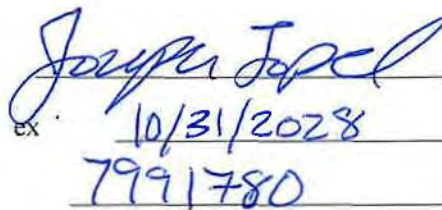 Joseph
ex 10/31/2028
7991780